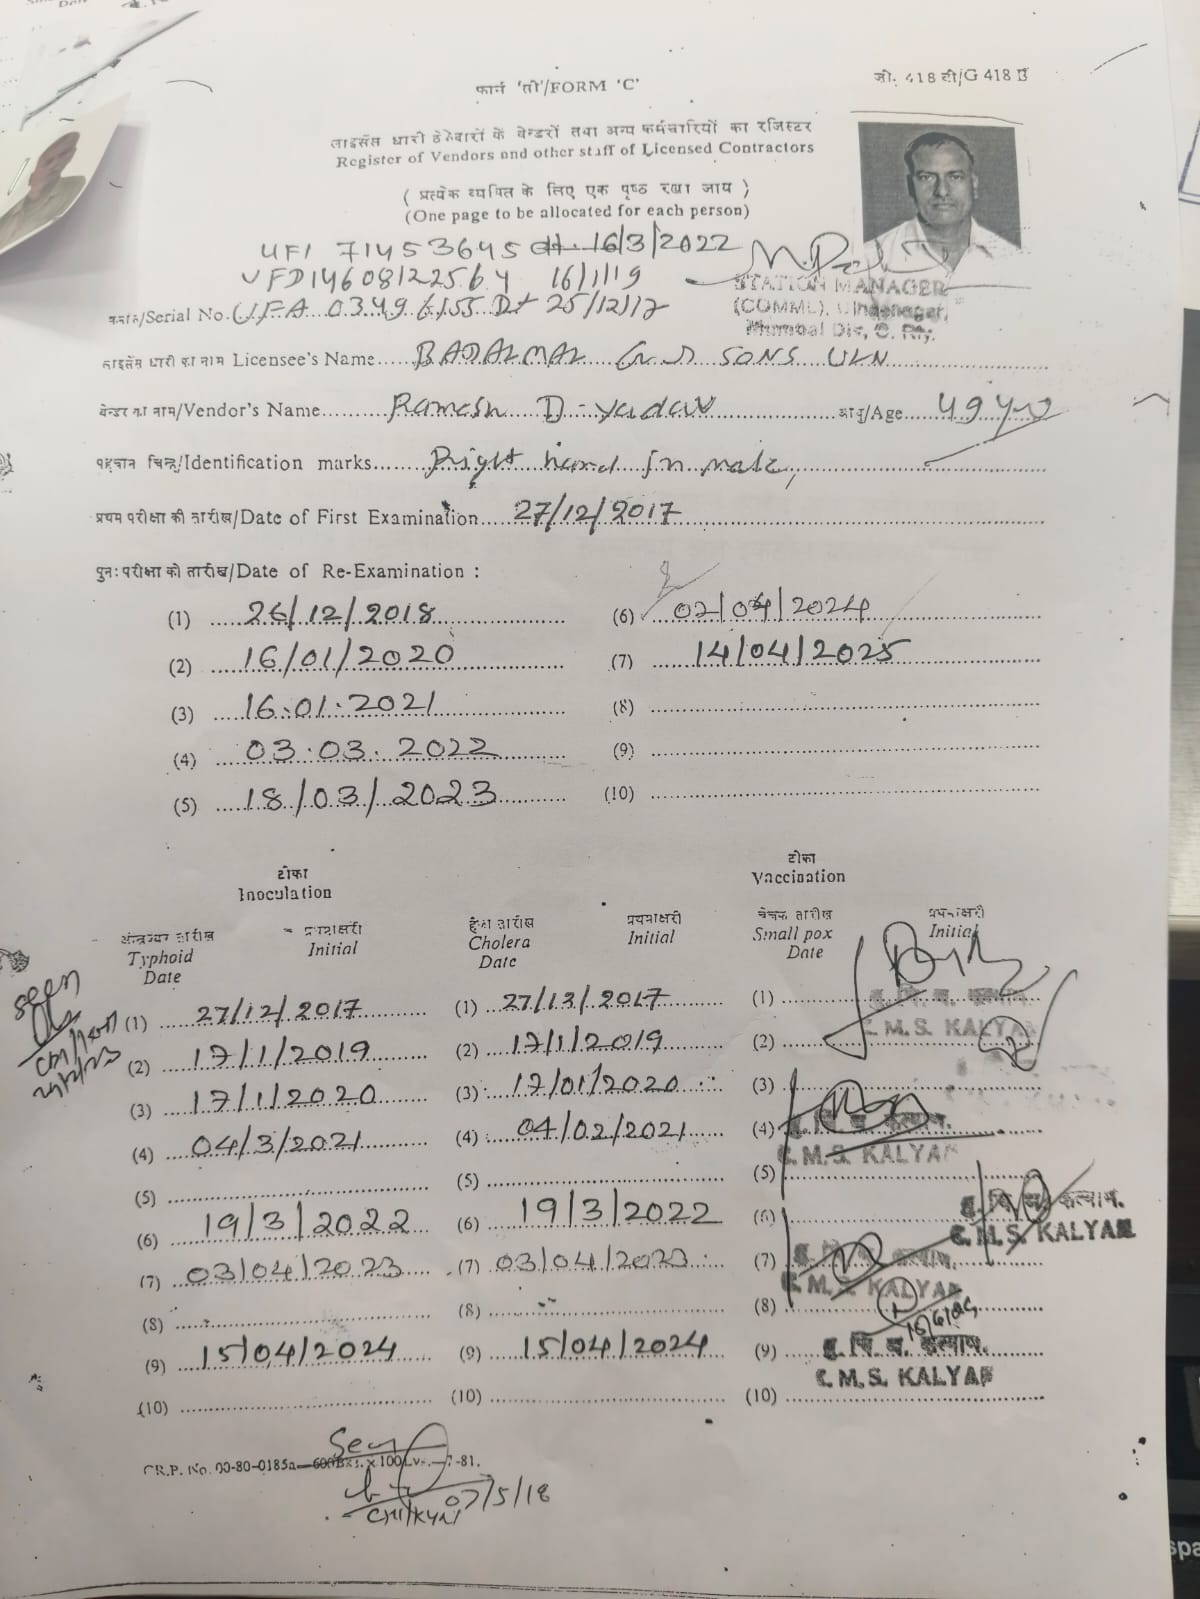 जी. 418 सी/G 418
फार्म 'सी'/FORM 'C'
लाइसेंस धारी ठेकेदारों के वेन्डरों तथा अन्य कर्मचारियों का रजिस्टर
Register of Vendors and other staff of Licensed Contractors
( प्रत्येक व्यक्ति के लिए एक पृष्ठ रखा जाय )
(One page to be allocated for each person)
UFI 71453645 dt. 16/3/2022
UFD14608122564 16/1/19
क्रमांक/Serial No. UFA 03496155 Dt 25/12/17
STATION MANAGER
(COMML), Ulhasnagar,
Mumbai Div, C. Rly.
लाइसेंस धारी का नाम Licensee's Name BADALMAL SONS ULN
वेन्डर का नाम/Vendor's Name Ramesh D. Yadav आयु/Age 49
पहचान चिन्ह/Identification marks Right hand
प्रथम परीक्षा की तारीख/Date of First Examination 27/12/2017
पुनः परीक्षा की तारीख/Date of Re-Examination :
(1) 26/12/2018 (6) 02/04/2024
(2) 16/01/2020 (7) 14/04/2025
(3) 16.01.2021 (8)
(4) 03.03.2022 (9)
(5) 18/03/2023 (10)
टीका टीका
Inoculation Vaccination
तारीख प्रथमाक्षरी हैजा तारीख प्रथमाक्षरी चेचक तारीख प्रथमाक्षरी
Typhoid Date Initial Cholera Date Initial Small pox Date Initial
seen
(1) 27/12/2017 (1) 27/12/2017 (1)
C.M.S. KALYAN
(2) 17/1/2019 (2) 17/1/2019 (2)
(3) 17/1/2020 (3) 17/01/2020 (3)
(4) 04/3/2021 (4) 04/02/2021 (4) कल्याण.
C.M.S. KALYAN
(5) (5) (5)
(6) 19/3/2022 (6) 19/3/2022 (6) कल्याण.
C.M.S. KALYAN
(7) 03/04/2023 (7) 03/04/2023 (7) कल्याण.
C.M.S. KALYAN
(8) (8) (8)
(9) 15/04/2024 (9) 15/04/2024 (9) कल्याण.
C.M.S. KALYAN
(10) (10) (10)
C.R.P. No. 00-80-0185a—600 Bks. × 100 Lvs.—7-81.
Seen
CMI/KYN 07/5/18